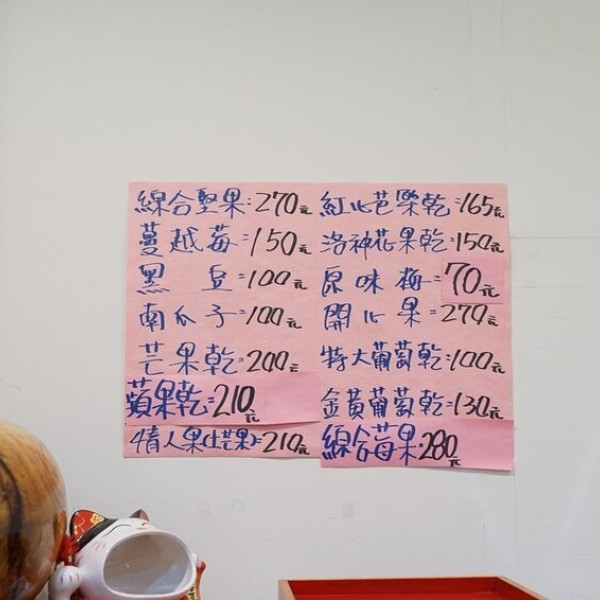 綜合堅果:270元
蔓越莓=150元
黑豆=100元
南瓜子=100元
芒果乾=200元
蘋果乾=210元
情人果(土芒果)=210元
紅心芭樂乾=165元
洛神花果乾=150元
原味梅=70元
開心果=270元
特大葡萄乾=100元
金黃葡萄乾=130元
綜合莓果=280元